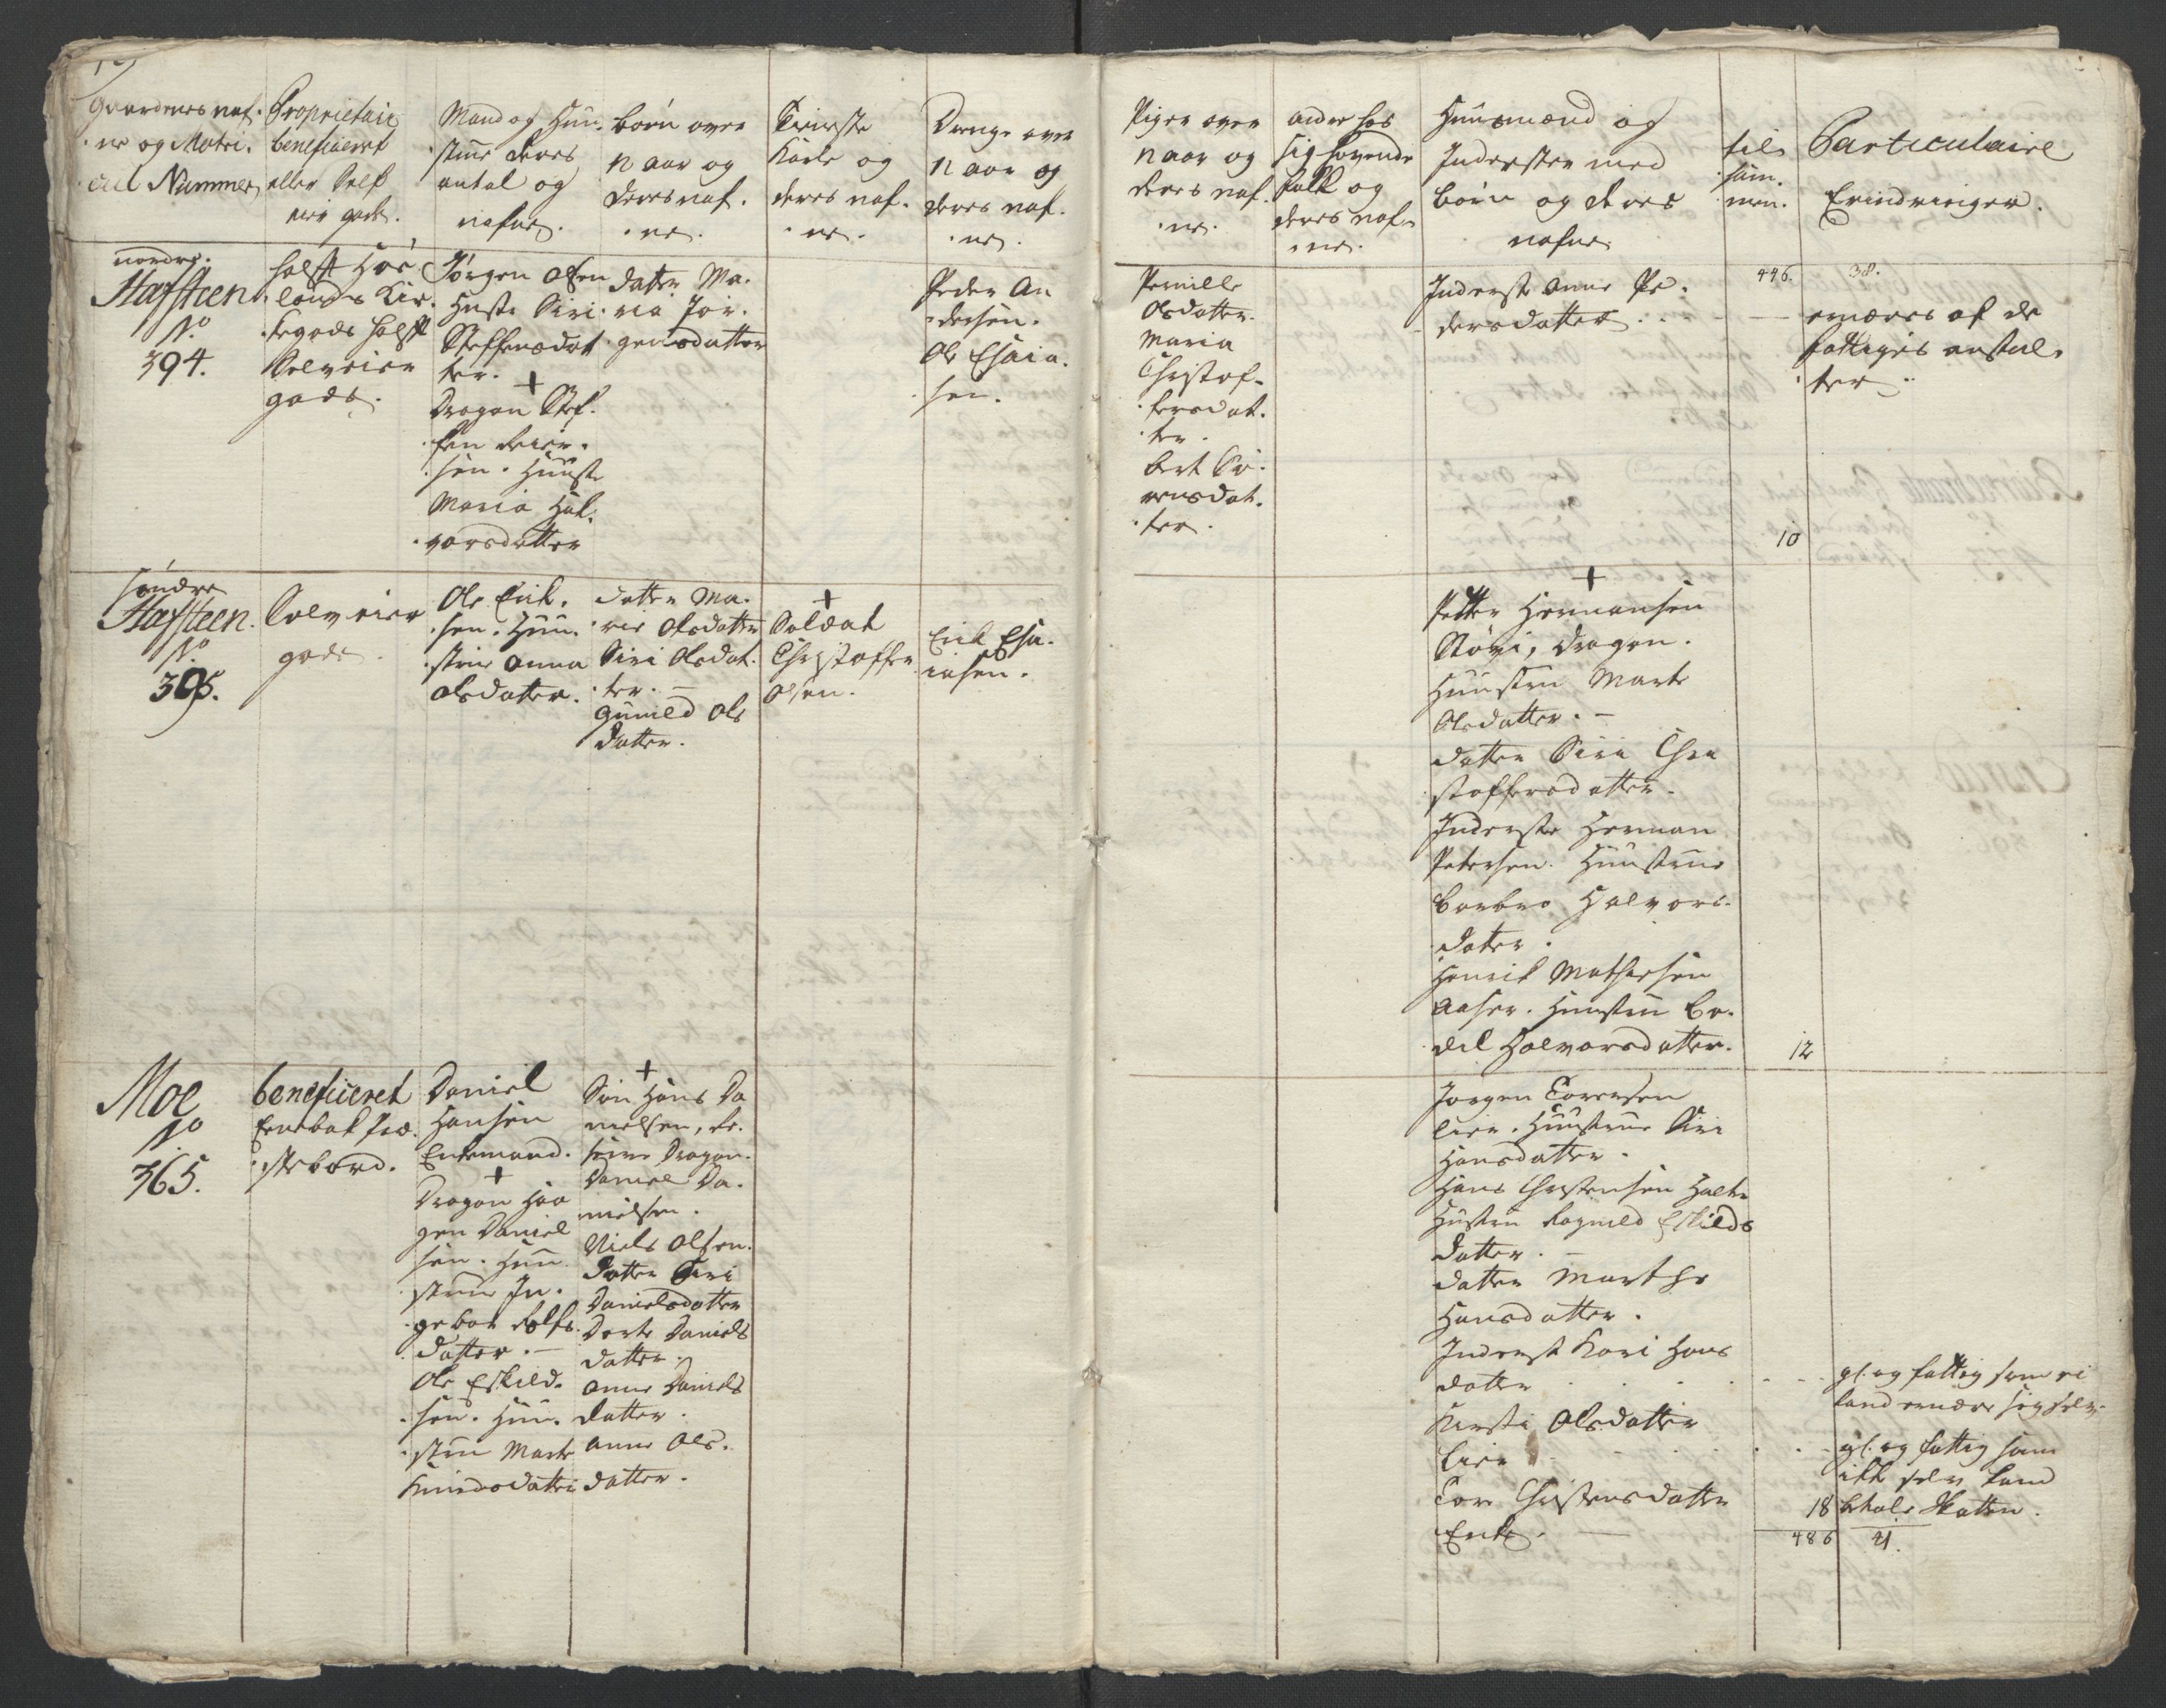 Gaardenes naf-
ne og Matri-
cul Nummer
Proprietair
beneficeret
eller Self
eier gods.
Mand og Huu-
strue deres
antal og
nafne.
børn over
12 aar og
deres naf-
ne.
Tieneste
Karle og
deres naf-
ne.
Drenge over
12 aar og
deres naf-
ne.
Piger over
12 aar og
deres naf-
ne.
andre hos
sig havende
folk og
deres naf-
ne.
Huusmænd og
Inderster med
børn og deres
nafne
til-
sam-
men.
Particulaire
Erindringer.
nordre
Hafsteen
No
394.
halft Hør-
lands Kir-
kegods halft
Selveier
gods.
Jørgen Olsen
Huste Siri
Steffensdat-
ter.
+
Dragon Stef-
fen
sen. Huuste
Maria Hal-
vorsdatter
datter Ma-
ria Jør-
gensdatter
Peder An-
dersen.
Ole Esaia-
sen.
Pernille
Olsdatter
Maria
Christof-
fersdat-
ter.
Bert Sø-
rensdat-
ter.
Inderste Anne Pe-
dersdatter
446.
10
38.
ernæres af de
fattiges anstal-
ter.
søndre
Hafsteen.
No
395.
Selveier
gods.
Ole Erik-
sen. Huu-
strue Anna
Olsdatter.
datter Ma-
rie Olsdatter
Siri Olsdat-
ter. –
Gunild Ols
datter.
+
Soldat
Christoffer
Olsen.
Erik Esa-
iasen.
+
Petter Hermansen
Støvi, Dragon.
Huustru Marte
Olsdatter. –
datter Siri Chri
stoffersdatter.
Inderste Herman
Petersen. Huustrue
Barbro Halvors-
datter.
Henrik Mathiesen
Aaser. Huustru Bo-
dil Halvorsdatter.
12
Moe
No
365.
beneficeret
Enebak Præ-
stebord.
Daniel
Hansen
Enkemand.
+
Dragon Haa
gen Daniel
sen. Huu-
strue In-
gebor Rolfs
datter. –
Ole Eskild-
sen. Huu-
stru Marte
Knudsdatter
+
Søn Hans Da
nielsen, re-
serve Dragon.
Daniel Da-
nielsen.
Niels Olsen.
datter Siri
Danielsdatter
Dorte Daniels
datter.
Anne Daniels
datter.
Anne Ols-
datter.
Jørgen Torersen
Lien. Huustrue Siri
Hansdatter.
Hans Christensen
Hustru Ragnild Eskilds
datter. –
datter Marthe
Hansdatter.
Inderst Kari Hans
datter
Kirsti Olsdatter
Lien
Tore Christensdatter
Enke. –
gl: og fattig som ei
kand ernære sig selv.
gl: og fattig som
ikke selv kand
18 betale Skatten.
486
41.